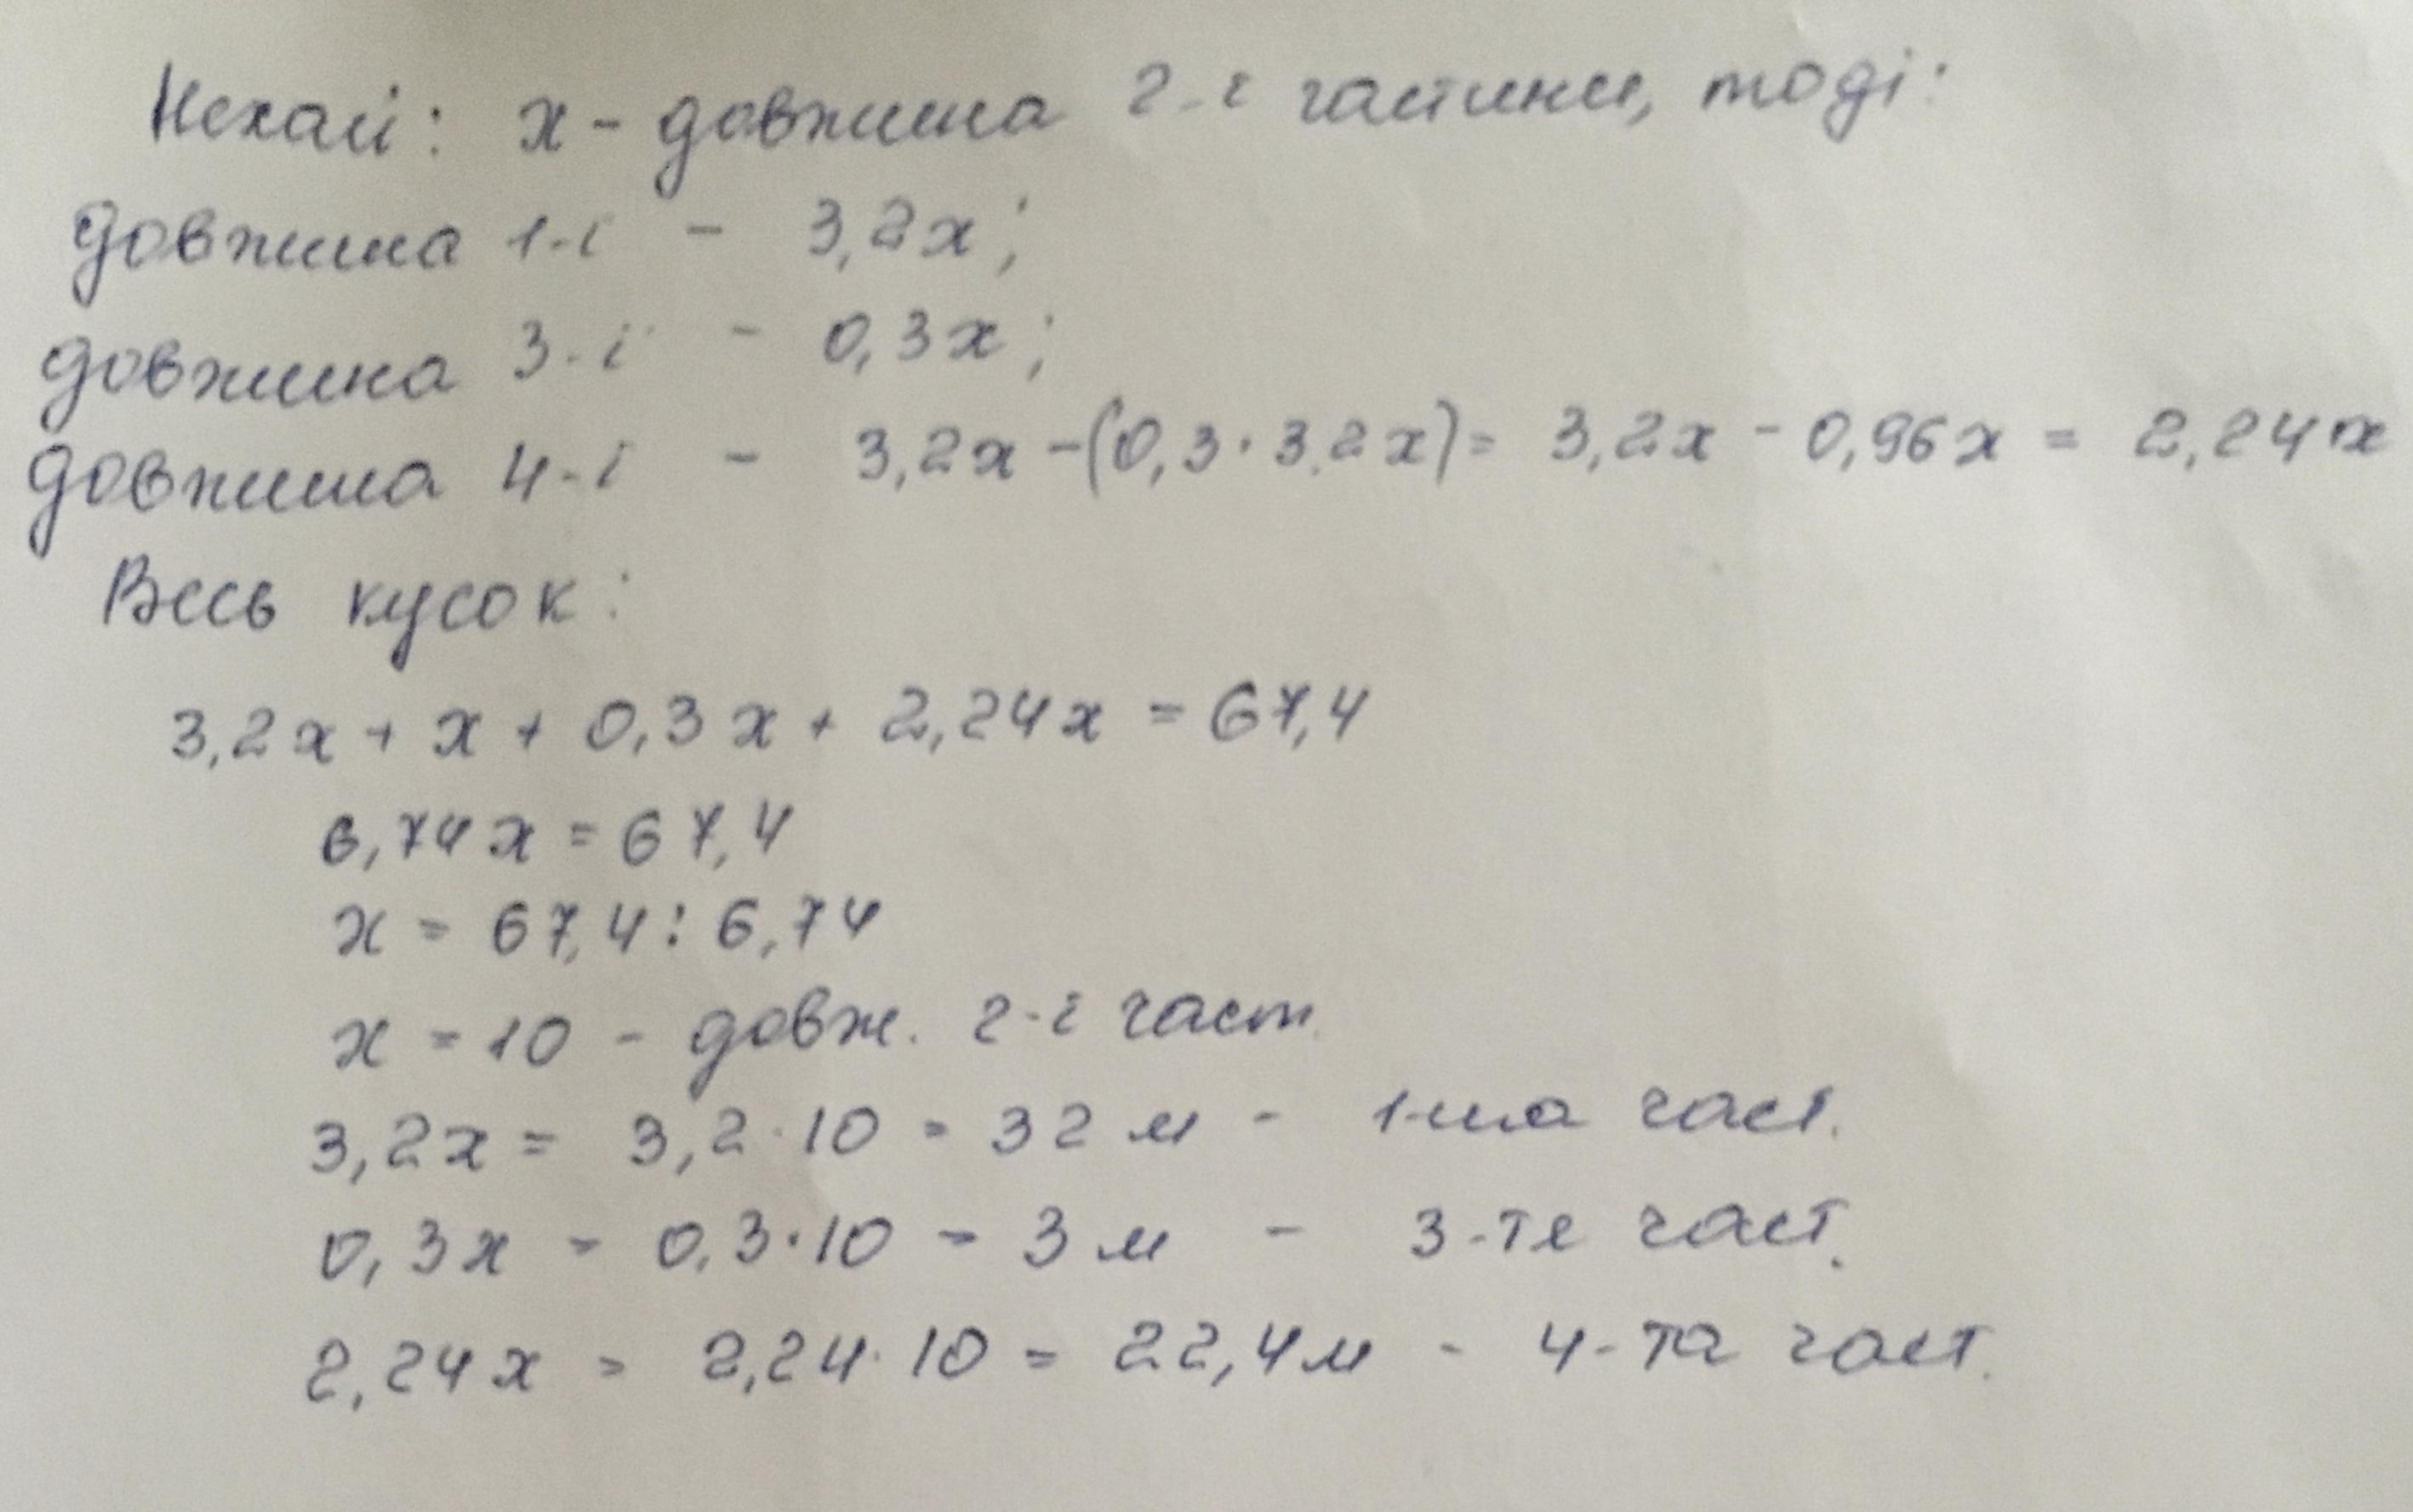 Нехай: х - довжина 2-ї частини, тоді:
довжина 1-ї - 3,2х;
довжина 3-ї - 0,3х;
довжина 4-ї - 3,2х - (0,3 · 3,2х) = 3,2х - 0,96х = 2,24х
Весь кусок:
3,2х + х + 0,3х + 2,24х = 67,4
6,74х = 67,4
х = 67,4 : 6,74
х = 10 - довж. 2-ї част.
3,2х = 3,2 · 10 = 32 м - 1-ша част.
0,3х = 0,3 · 10 = 3 м - 3-тя част.
2,24х = 2,24 · 10 = 22,4 м - 4-та част.